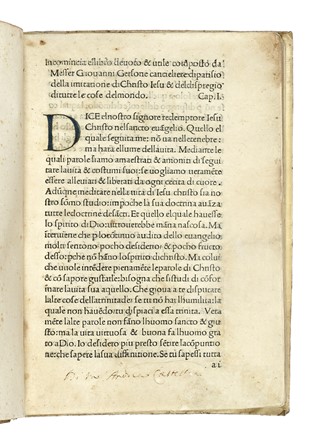 Incomincia ellibro deuoto & utile cõposto da
Messer Giouanni Gersone cancelliere diparisio
della imitatione di Christo Iesu & deldispregio
di tutte le cose delmondo. Cap. I.
DICE elnostro signore redemptore Iesu
Christo nelsancto euãgelio. Quello el
quale seguita me: nõ ua nelle tenebre:
ma hara ellume dellauita. Mediante le
quali parole siamo amaestrati & amoniti di seguí
tare lauita & costumi suoi: se uogliamo ueramẽte
essere alleuiati & liberati da ogni cecita di cuore.
Adũque meditare nella uita di Iesu christo sia no
stro sõmo studio: impoche la sua doctrina auãza
tutte ledoctrine desãcti. Et quello elquale hauesse
lo spirito di Dio: ui trouerrebbe mãna nascosa. Ma
interuiene che plo cõtinuo audito dello euangelio
molti sentono pocho desiderio & pocho fructo
desso: pche nõ hãno lo spirito di christo. Ma colui
che uuole intẽdere pienamẽte leparole di Christo
& cõ sapore gustarle: bisogna che studi di cõfor
mare lauita sua aquello. Che gioua a te disputare
lalte cose della trinita: se tu nõ hai lhumilita: la
quale non hauẽdo tu dispiaci a essa trinita. Vera
mẽte lalte parole non fano lhuomo sancto & giu
sto: ma la uita uirtuosa & buona fa lhuomo gra
to a Dio. Io desidero piu presto sẽtire lacõpuntio
ne: che sapere la sua diffinitione. Se tu sapessi tutta
a i